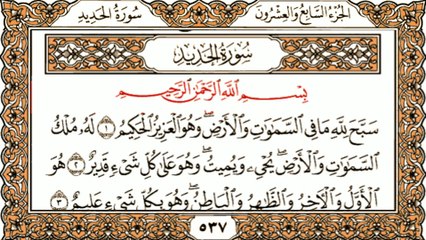 الجزء السابع والعشرون
سورة الحديد
سورة الحديد
بِسْمِ اللَّهِ الرَّحْمَٰنِ الرَّحِيمِ
سَبَّحَ لِلَّهِ مَا فِي السَّمَٰوَٰتِ وَالْأَرْضِ ۖ وَهُوَ الْعَزِيزُ الْحَكِيمُ ١ لَهُ مُلْكُ
السَّمَٰوَٰتِ وَالْأَرْضِ ۖ يُحْيِي وَيُمِيتُ ۖ وَهُوَ عَلَىٰ كُلِّ شَيْءٍ قَدِيرٌ ٢ هُوَ
الْأَوَّلُ وَالْآخِرُ وَالظَّاهِرُ وَالْبَاطِنُ ۖ وَهُوَ بِكُلِّ شَيْءٍ عَلِيمٌ ٣
٥٣٧